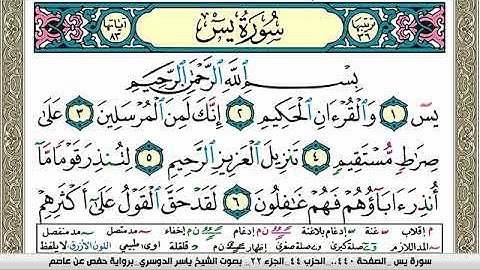 ترتيبها ٣٦ سُورَةُ يسٓ آياتها ٨٣
بِسْمِ ٱللَّهِ ٱلرَّحْمَٰنِ ٱلرَّحِيمِ
يسٓ ١ وَٱلْقُرْءَانِ ٱلْحَكِيمِ ٢ إِنَّكَ لَمِنَ ٱلْمُرْسَلِينَ ٣ عَلَىٰ
صِرَٰطٍ مُّسْتَقِيمٍ ٤ تَنزِيلَ ٱلْعَزِيزِ ٱلرَّحِيمِ ٥ لِتُنذِرَ قَوْمًا مَّآ
أُنذِرَ ءَابَآؤُهُمْ فَهُمْ غَٰفِلُونَ ٦ لَقَدْ حَقَّ ٱلْقَوْلُ عَلَىٰٓ أَكْثَرِهِمْ
م إقلاب غنة إدغام بلاغنة ن م إدغام ن م إخفاء مد متصل مد منفصل
المد اللازم صلة كبرى صلة صغرى إظهار ن م قلقلة اوى طبيعي اللون الأزرق لا يلفظ
سورة يس الصفحة ٤٤٠.. الحزب ٤٤ الجزء ٢٢.. بصوت الشيخ ياسر الدوسري.. برواية حفص عن عاصم